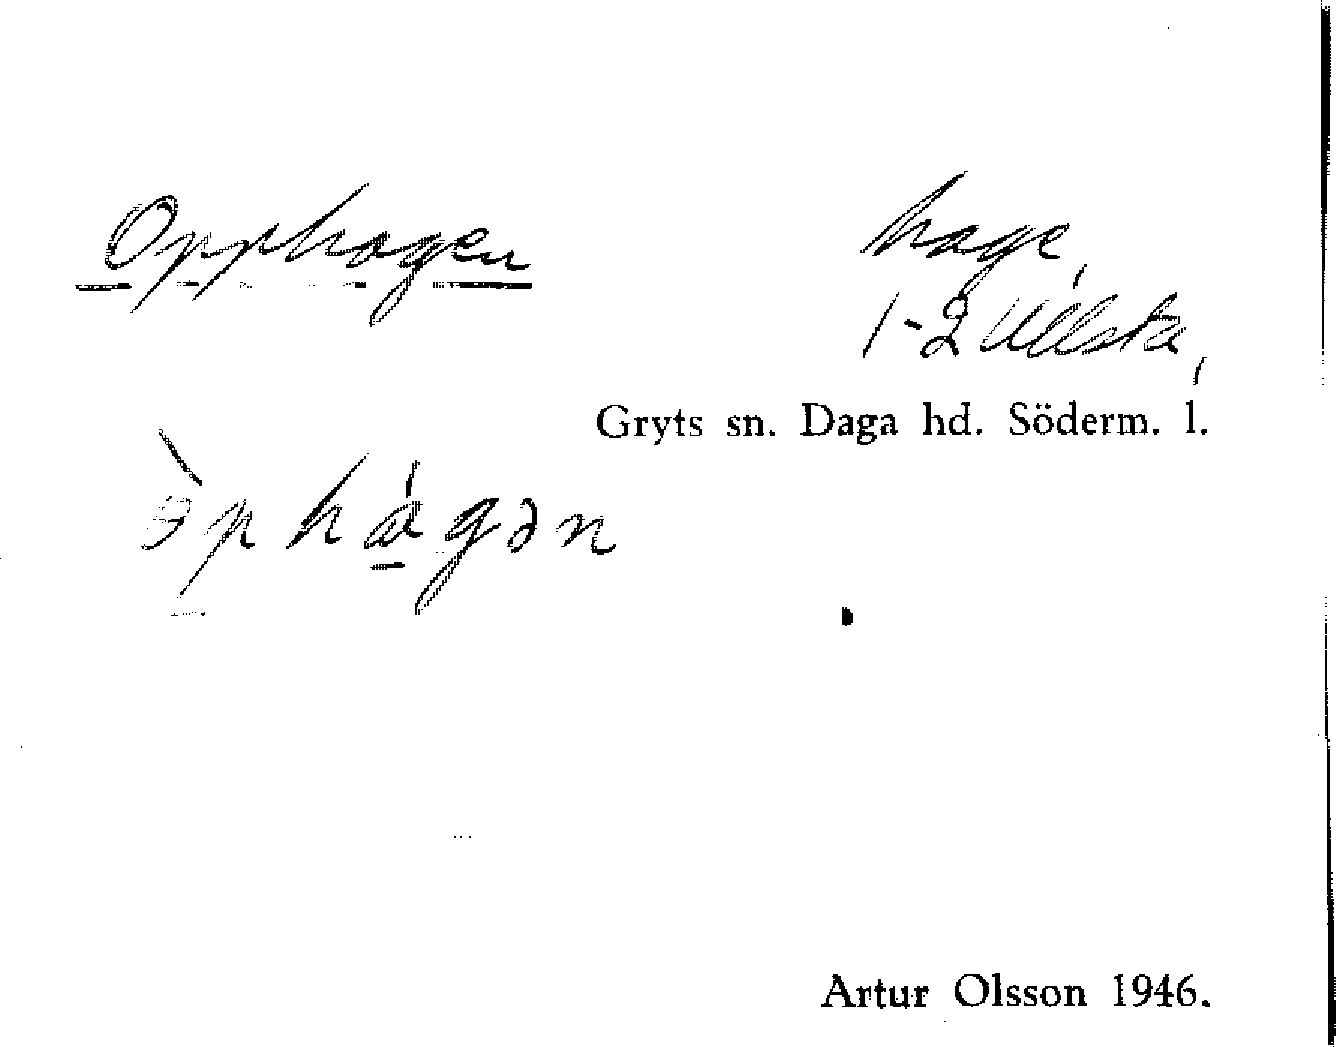 Opphagen
hage,
1-2 Ullsta,
Gryts sn. Daga hd. Söderm. l.
Artur Olsson 1946.